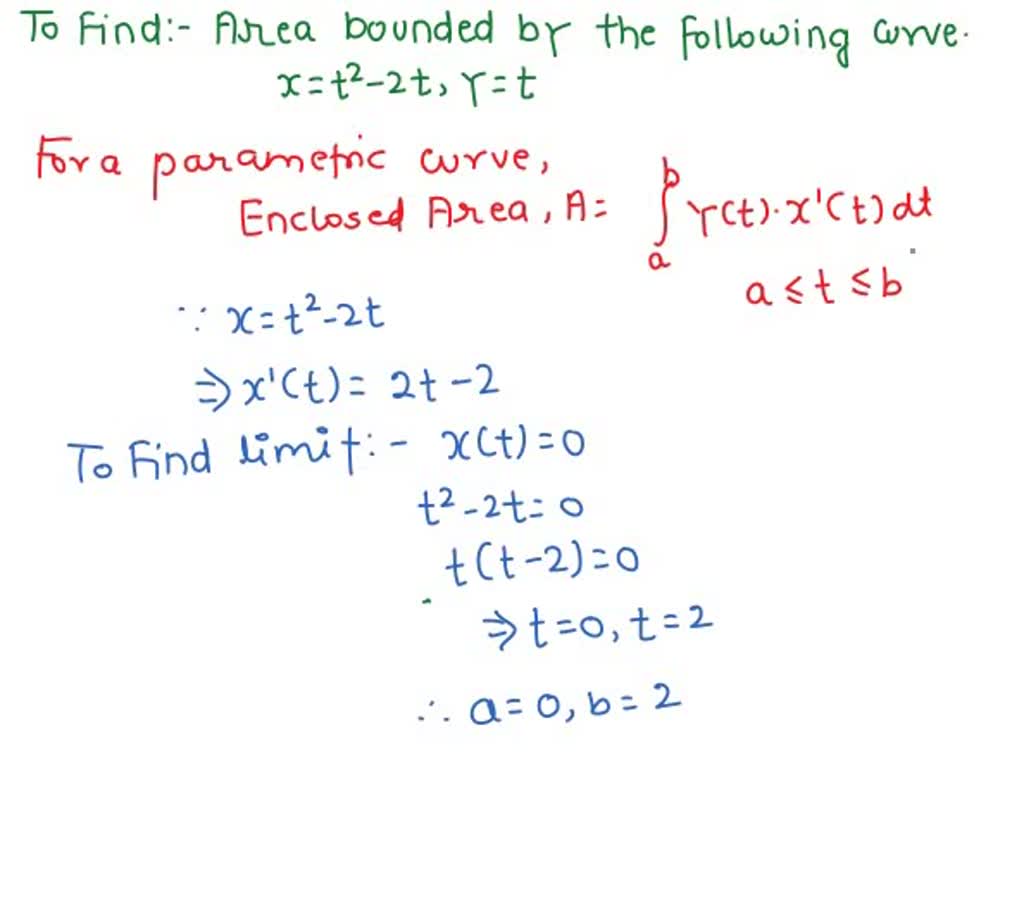 To Find:- Area bounded by the following curve.
x=t²-2t, Y=t
For a parametric curve,
Enclosed Area, A= ∫ₐᵇ Y(t)·x'(t)dt
a≤t≤b
∵ x=t²-2t
⇒x'(t)= 2t-2
To Find limit:- x(t)=0
t²-2t=0
t(t-2)=0
⇒t=0, t=2
∴ a=0, b=2